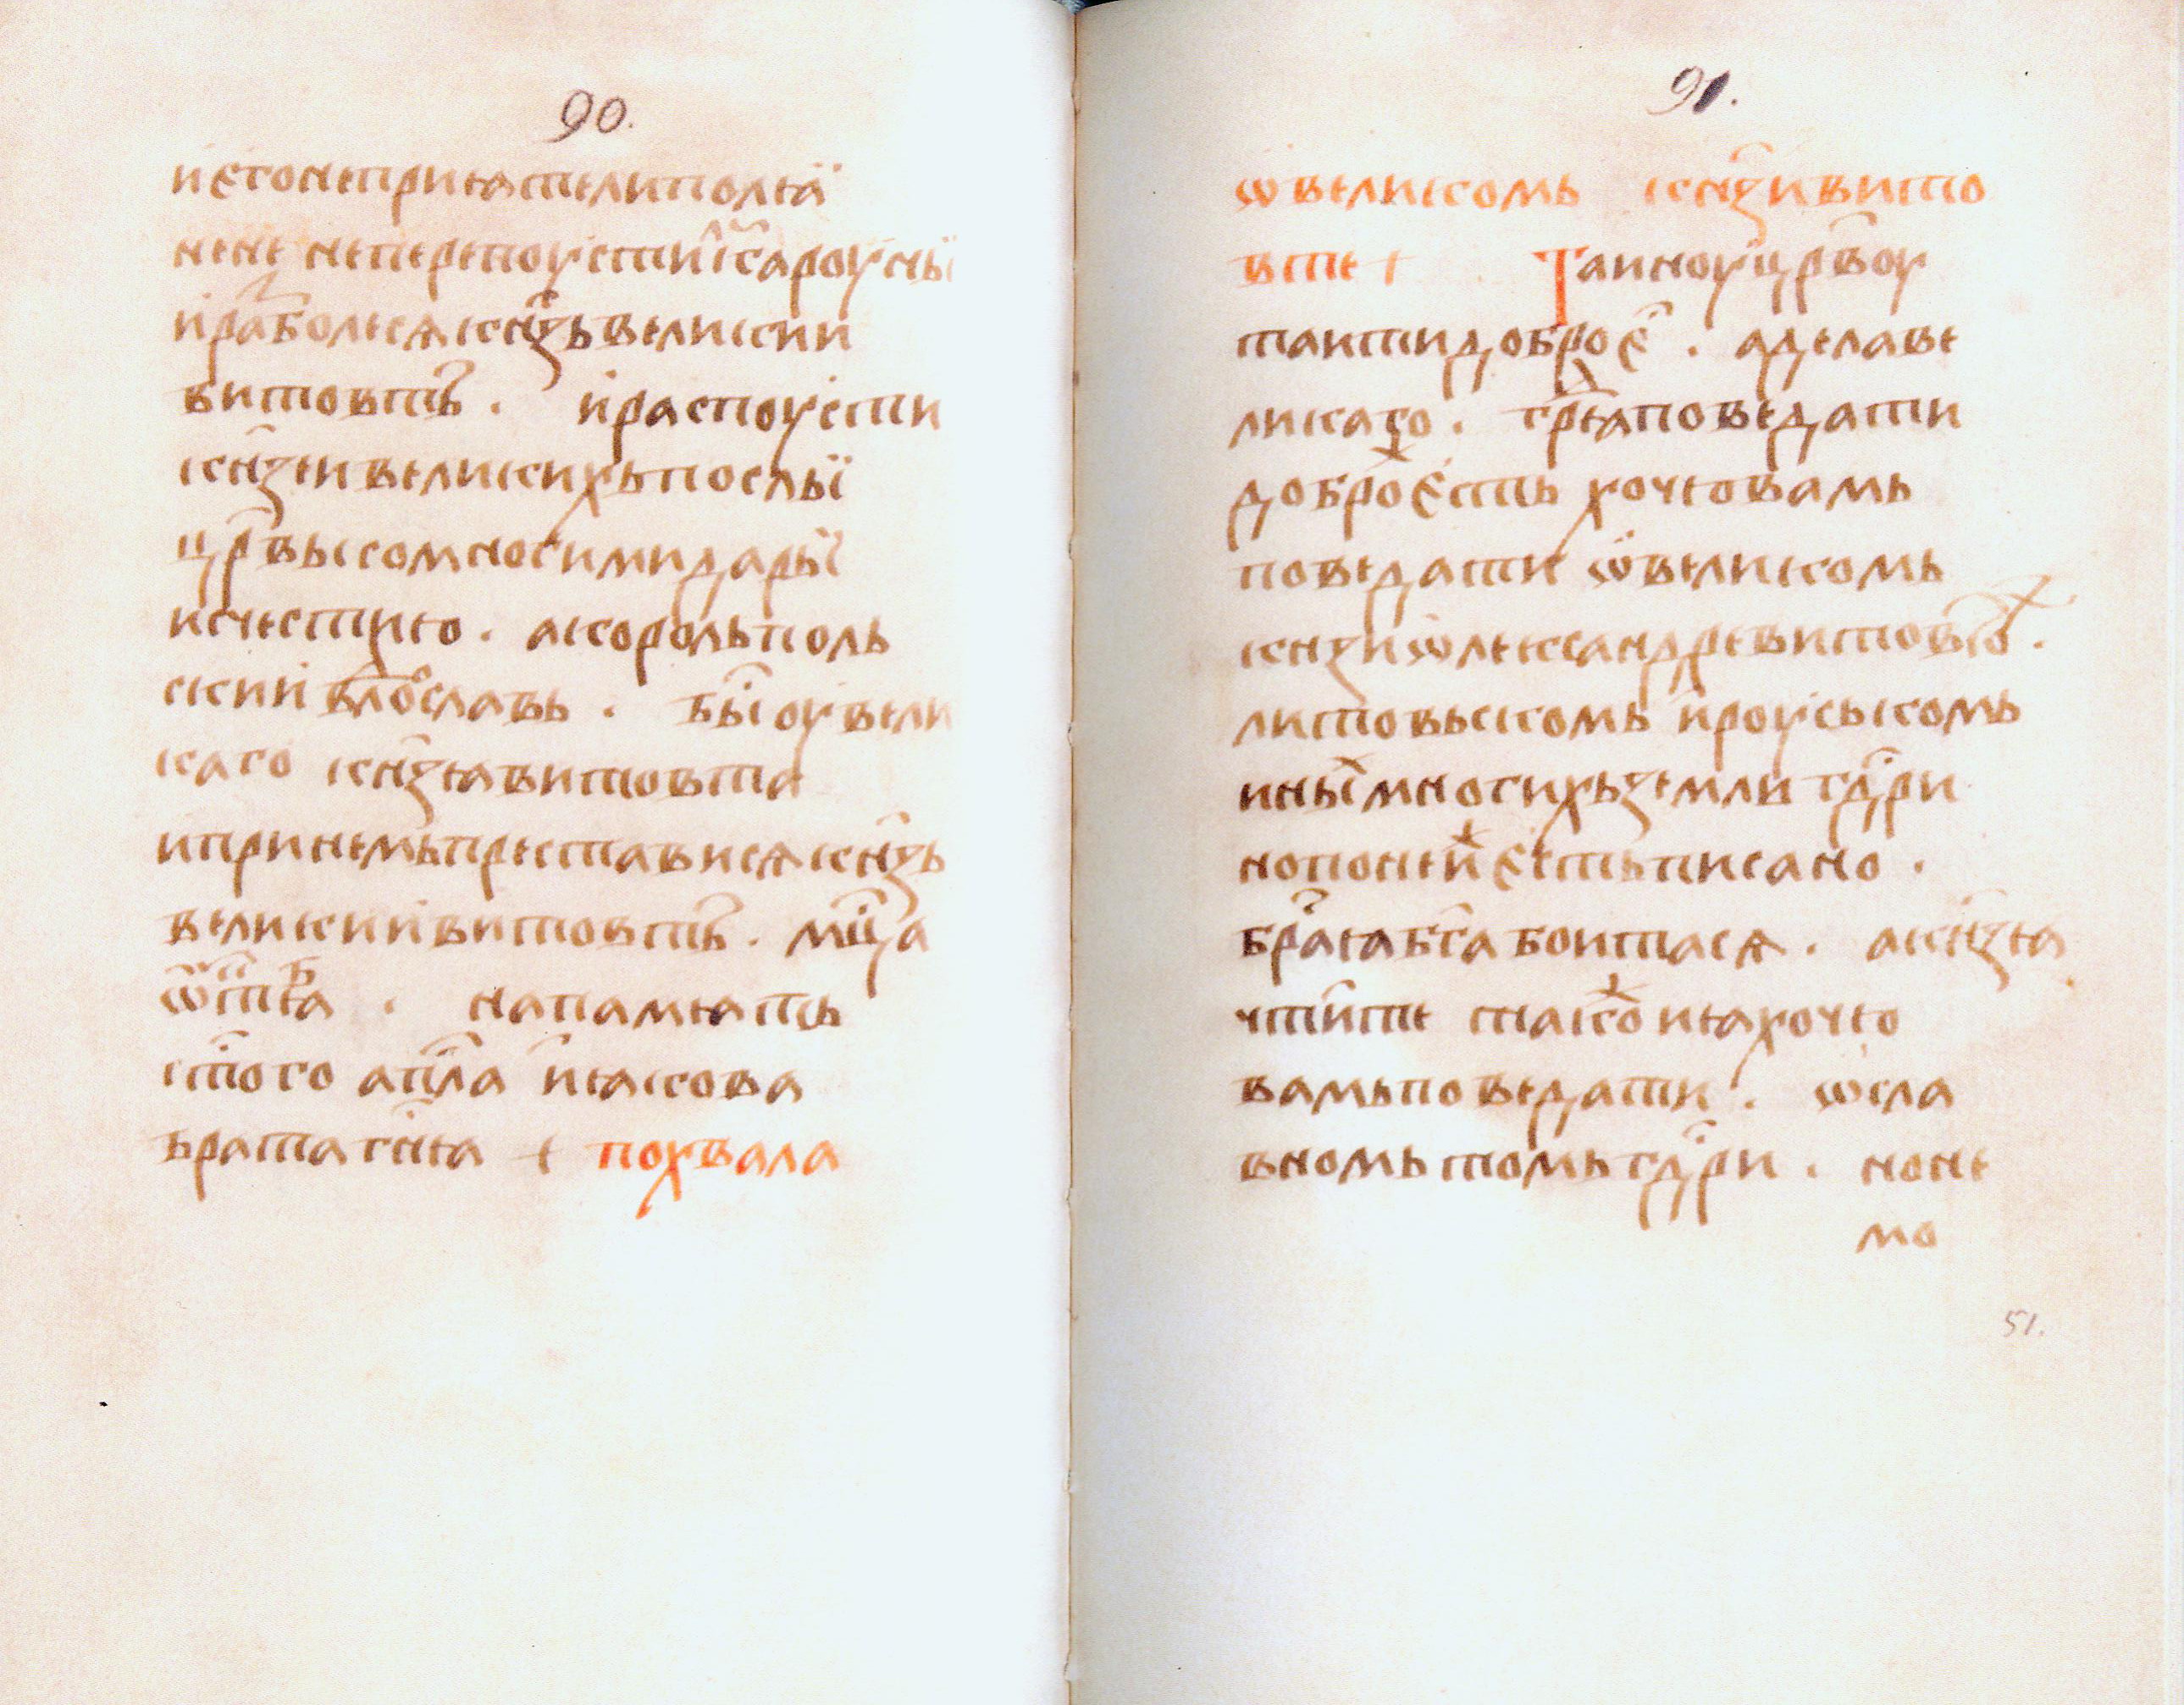 90.
и єгонеприꙗтелиполꙗ
нене неперепоустиⷧ҇коароуны
и раꙁболесѧкн҃зьвеликии
витовтъ . ираспоусти
кн҃зеивеликихьпослы
цр҃выкомногимидары
ичестию . акорольполь
скии влⷪ҇дславь . бы оувели
каго кн҃зꙗвитовта
ипринемьпрестависѧкн҃зь
великиивитовтъ . мц҃а
напамꙗть
ст҃ого ап҃ла иꙗкова
братагн҃ꙗ + похвала
91.
ѡвеликомь кн҃зивито
вте + Таиноуцр҃воу
таитидоброє . аделаве
ликаго . гр҃ꙗповедати
доброєсть хочювамь
поведати ѡвеликомь
кн҃зиѡлександревитовто .
литовьскомь ироусьскомь
иныⷯмногихьземлигд҃ри
нопонеи єстьписано .
бр҃аꙗбг҃абоитасѧ . акн҃зꙗ
чтите такоиꙗхочю
вамьповедати . ѡсла
вномьтомьгд҃ри . ноне
мо
51.